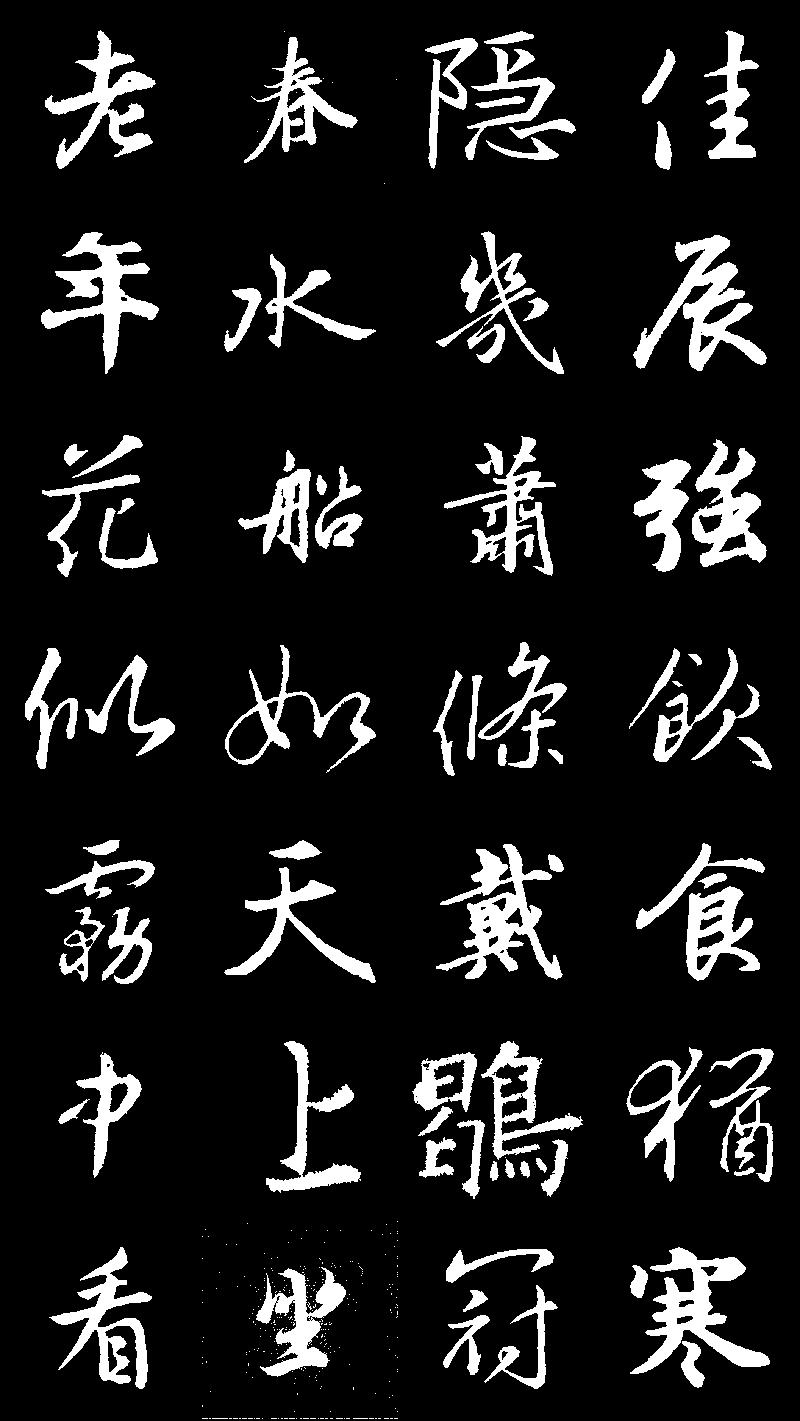 佳辰強飲食猶寒
隱几蕭條戴鶡冠
春水船如天上坐
老年花似霧中看